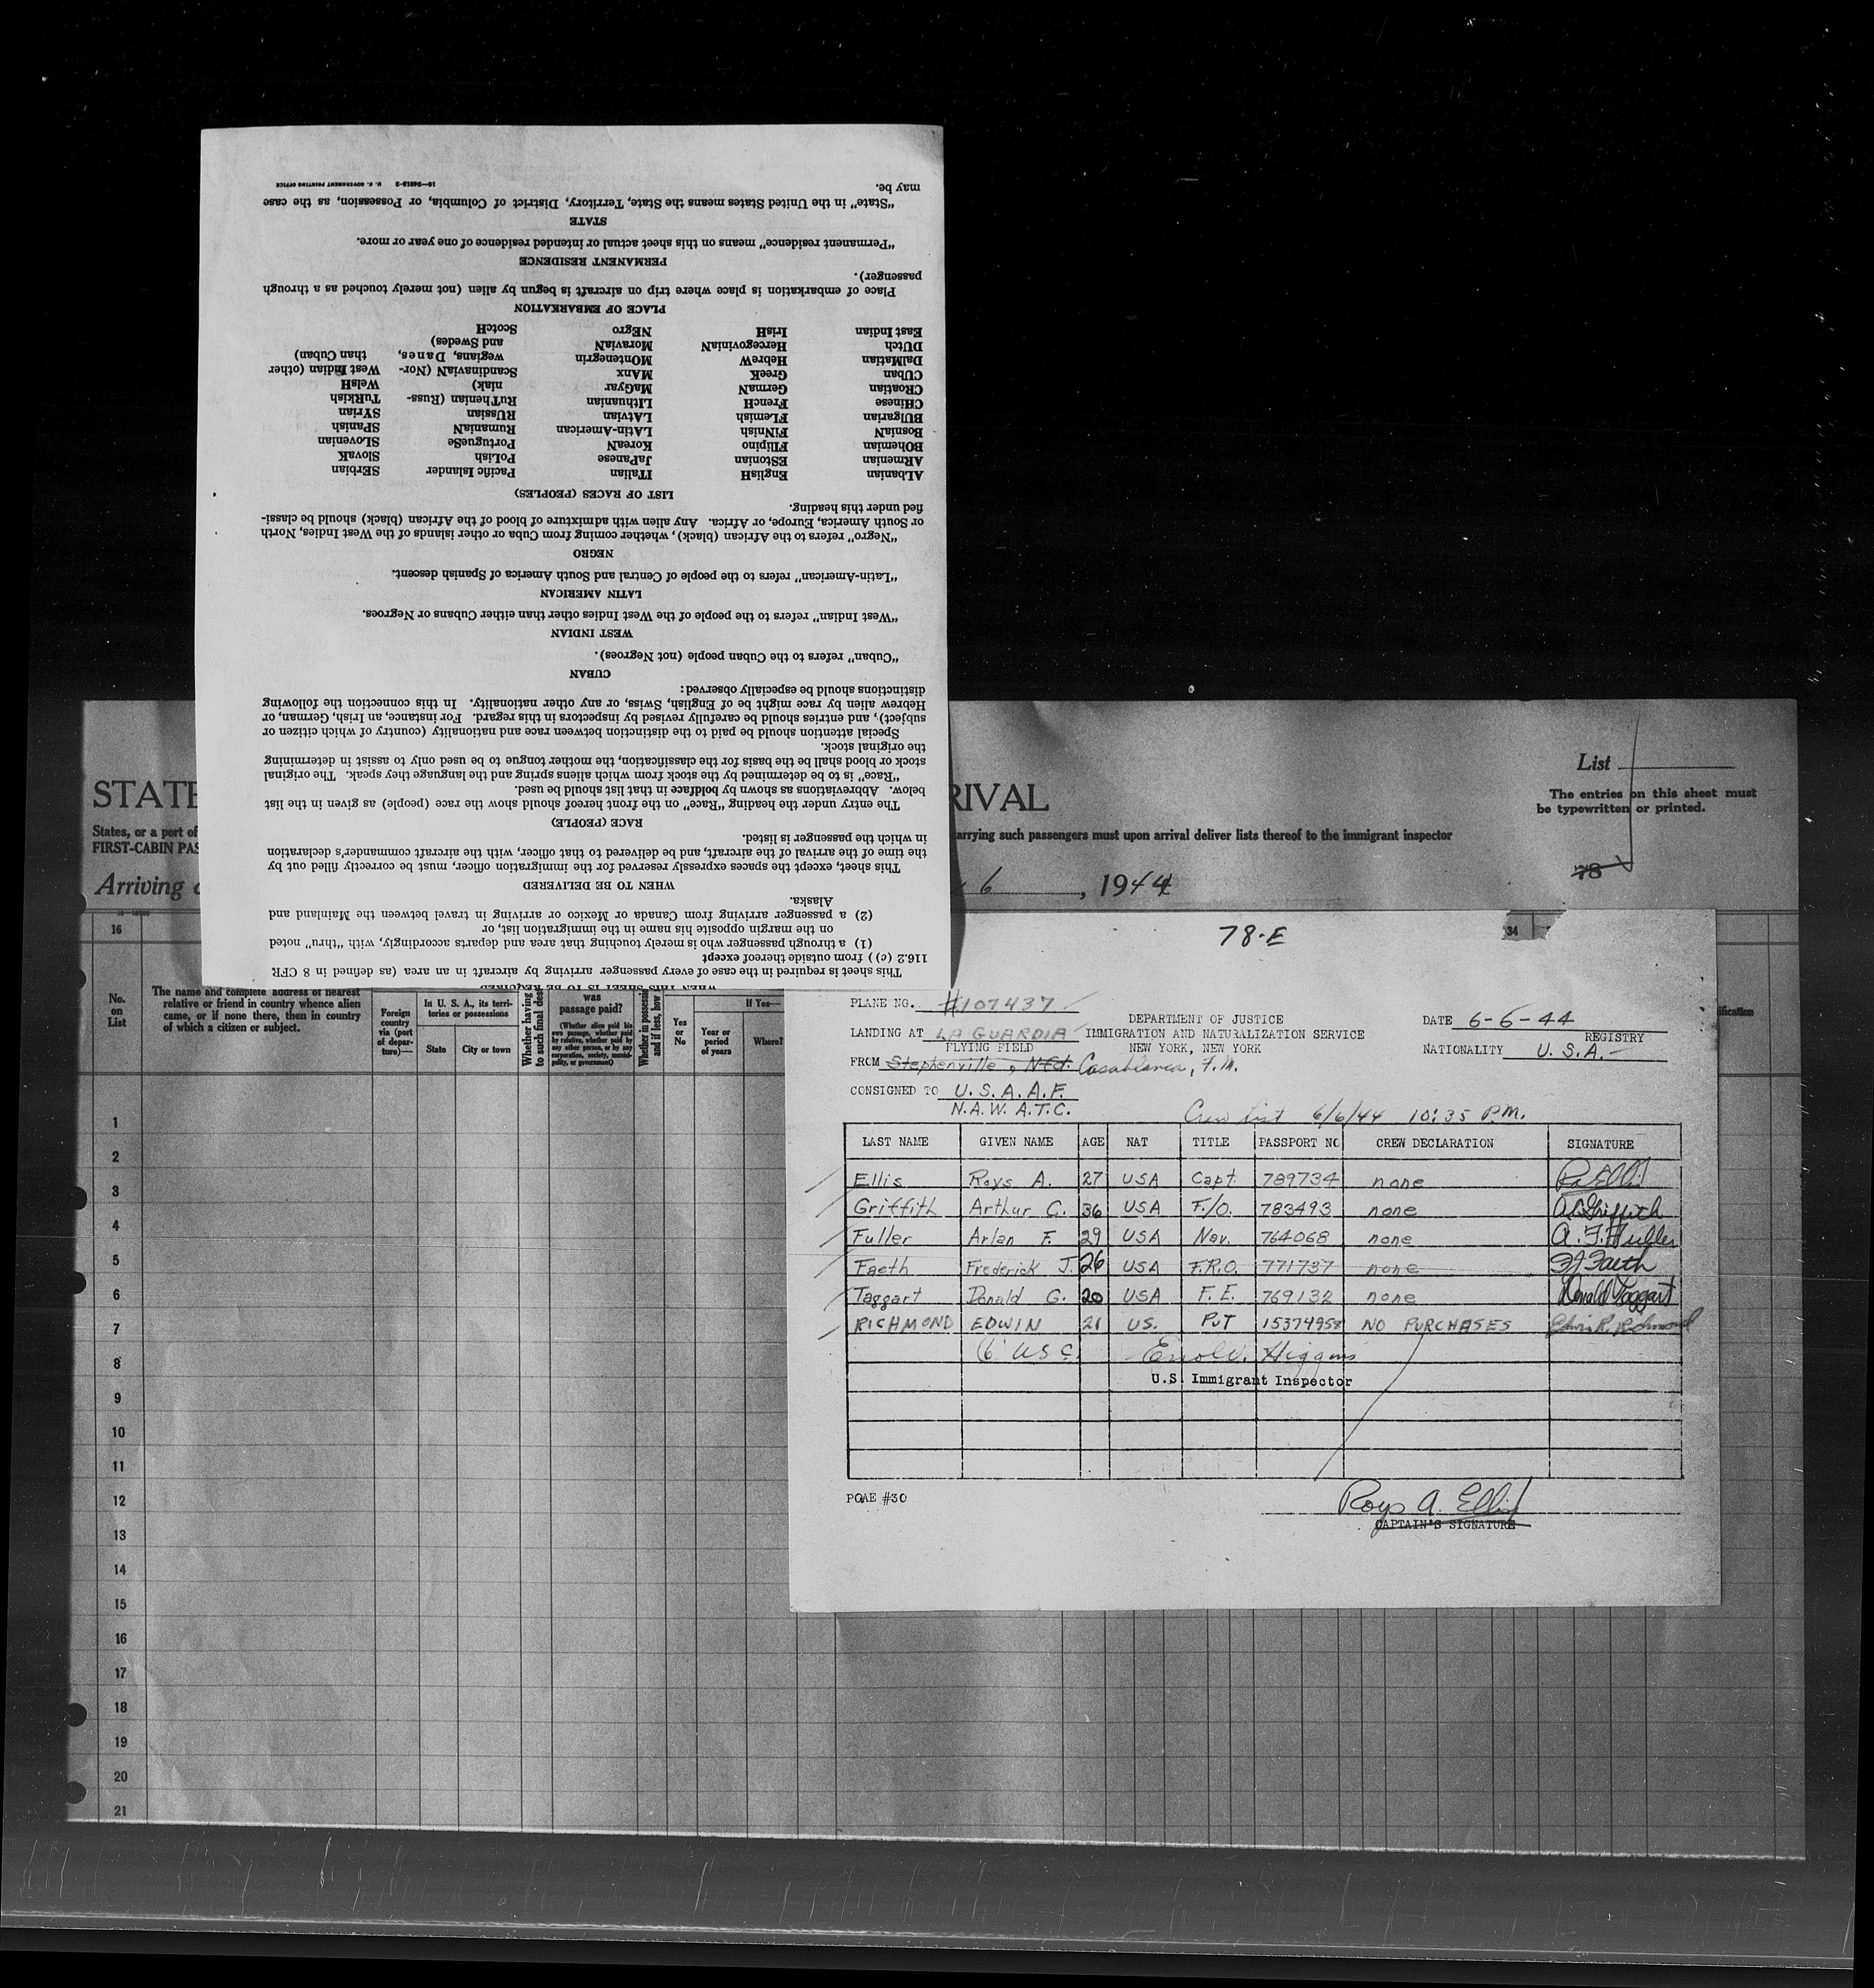 WHEN THIS SHEET IS TO BE REQUIRED
This sheet is required in the case of every passenger arriving by aircraft in an area (as defined in 8 CFR
116.2 (c)) from outside thereof except
(1) a through passenger who is merely touching that area and departs accordingly, with "thru" noted
on the margin opposite his name in the immigration list, or
(2) a passenger arriving from Canada or Mexico or arriving in travel between the Mainland and
Alaska.
WHEN TO BE DELIVERED
This sheet, except the spaces expressly reserved for the immigration officer, must be correctly filled out by
the time of the arrival of the aircraft, and be delivered to that officer, with the aircraft commander's declaration
in which the passenger is listed.
RACE (PEOPLE)
The entry under the heading "Race" on the front hereof should show the race (people) as given in the list
below. Abbreviations as shown by boldface in that list should be used.
"Race" is to be determined by the stock from which aliens spring and the language they speak. The original
stock or blood shall be the basis for the classification, the mother tongue to be used only to assist in determining
the original stock.
Special attention should be paid to the distinction between race and nationality (country of which citizen or
subject), and entries should be carefully revised by inspectors in this regard. For instance, an Irish, German, or
Hebrew alien by race might be of English, Swiss, or any other nationality. In this connection the following
distinctions should be especially observed:
CUBAN
"Cuban" refers to the Cuban people (not Negroes).
WEST INDIAN
"West Indian" refers to the people of the West Indies other than either Cubans or Negroes.
LATIN AMERICAN
"Latin-American" refers to the people of Central and South America of Spanish descent.
NEGRO
"Negro" refers to the African (black), whether coming from Cuba or other islands of the West Indies, North
or South America, Europe, or Africa. Any alien with admixture of blood of the African (black) should be classi-
fied under this heading.
LIST OF RACES (PEOPLES)
ALbanian EnglisH ITalian Pacific Islander SErbian
ARmenian EStonian JaPanese PoLish SlovaK
BOhemian FIlipino KoreaN PortugueSe SLovenian
BosniaN FiNNish LAtin-American RumaniaN SPanish
BUlgarian FLemish LATvian RUssian SYrian
CHinese FrencH LIthuanian RuThenian (Russ- TuRKish
CRoatian GermaN MaGyar niak) WelsH
CUban GreeK MAnx ScandinaviaN (Nor- West Indian (other
DalMatian HebreW MOntenegrin wegians, Danes, than Cuban)
DUtch HercegoviniaN MoraviaN and Swedes)
East Indian IrisH NEgro ScotcH
PLACE OF EMBARKATION
Place of embarkation is place where trip on aircraft is begun by alien (not merely touched as a through
passenger).
PERMANENT RESIDENCE
"Permanent residence" means on this sheet actual or intended residence of one year or more.
STATE
"State" in the United States means the State, Territory, District of Columbia, or Possession, as the case
may be.
16—24915-2 U. S. GOVERNMENT PRINTING OFFICE
STATE RIVAL
List
The entries on this sheet must
be typewritten or printed.
States, or a port of arrying such passengers must upon arrival deliver lists thereof to the immigrant inspector
FIRST-CABIN PAS
78
Arriving 6, 1944
16
34
No.
on
List
The name and complete address of nearest
relative or friend in country whence alien
came, or if none there, then in country
of which a citizen or subject.
Foreign
country
via (port
of depar-
ture)—
In U. S. A., its terri-
tories or possessions
State City or town
Whether having
to such final des
was
passage paid?
(Whether alien paid his
own passage, whether paid
by relative, whether paid by
any other person, or by any
corporation, society, munici-
pality, or government)
Whether in possessi
and if less, how
Yes
or
No
If Yes—
Year or
period
of years
Where?
1
2
3
4
5
6
7
8
9
10
11
12
13
14
15
16
17
18
19
20
21
78-E
PLANE NO. #107437
DEPARTMENT OF JUSTICE
DATE 6-6-44
LANDING AT LA GUARDIA IMMIGRATION AND NATURALIZATION SERVICE
REGISTRY
FLYING FIELD NEW YORK, NEW YORK
NATIONALITY U. S. A.
FROM Stephenville, Nfd. Casablanca, F.M.
CONSIGNED TO U. S. A. A. F.
N. A. W. A. T. C.
Crew List 6/6/44 10:35 P.M.
LAST NAME GIVEN NAME AGE NAT TITLE PASSPORT NO CREW DECLARATION SIGNATURE
Ellis Roys A. 27 USA Capt. 789734 none RaEllis
Griffith Arthur C. 36 USA F./O. 783493 none A C Griffith
Fuller Arlan F. 29 USA Nav. 764068 none A. F. Fuller
Faeth Frederick J. 26 USA F.R.O. 771737 none F J Faeth
Taggart Donald G. 20 USA F. E. 769132 none Donald Taggart
RICHMOND EDWIN 21 US. PVT 15374958 NO PURCHASES Edwin R. Richmond
(6 USC) Higgins
U.S. Immigrant Inspector
POAE #30
Roys A. Ellis
CAPTAIN'S SIGNATURE